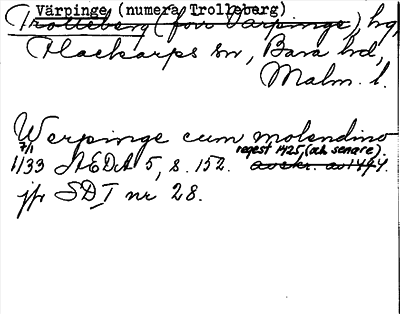 Värpinge (numera Trolleberg)
Trolleberg (förr Värpinge), hg,
Flackarps sn, Bara hd,
Malm. l.
Werpinge cum molendino
7/1 regest 1425, (och senare).
1133 ÆDA 5, s. 152. avskr. av 1494.
jfr SD I nr 28.